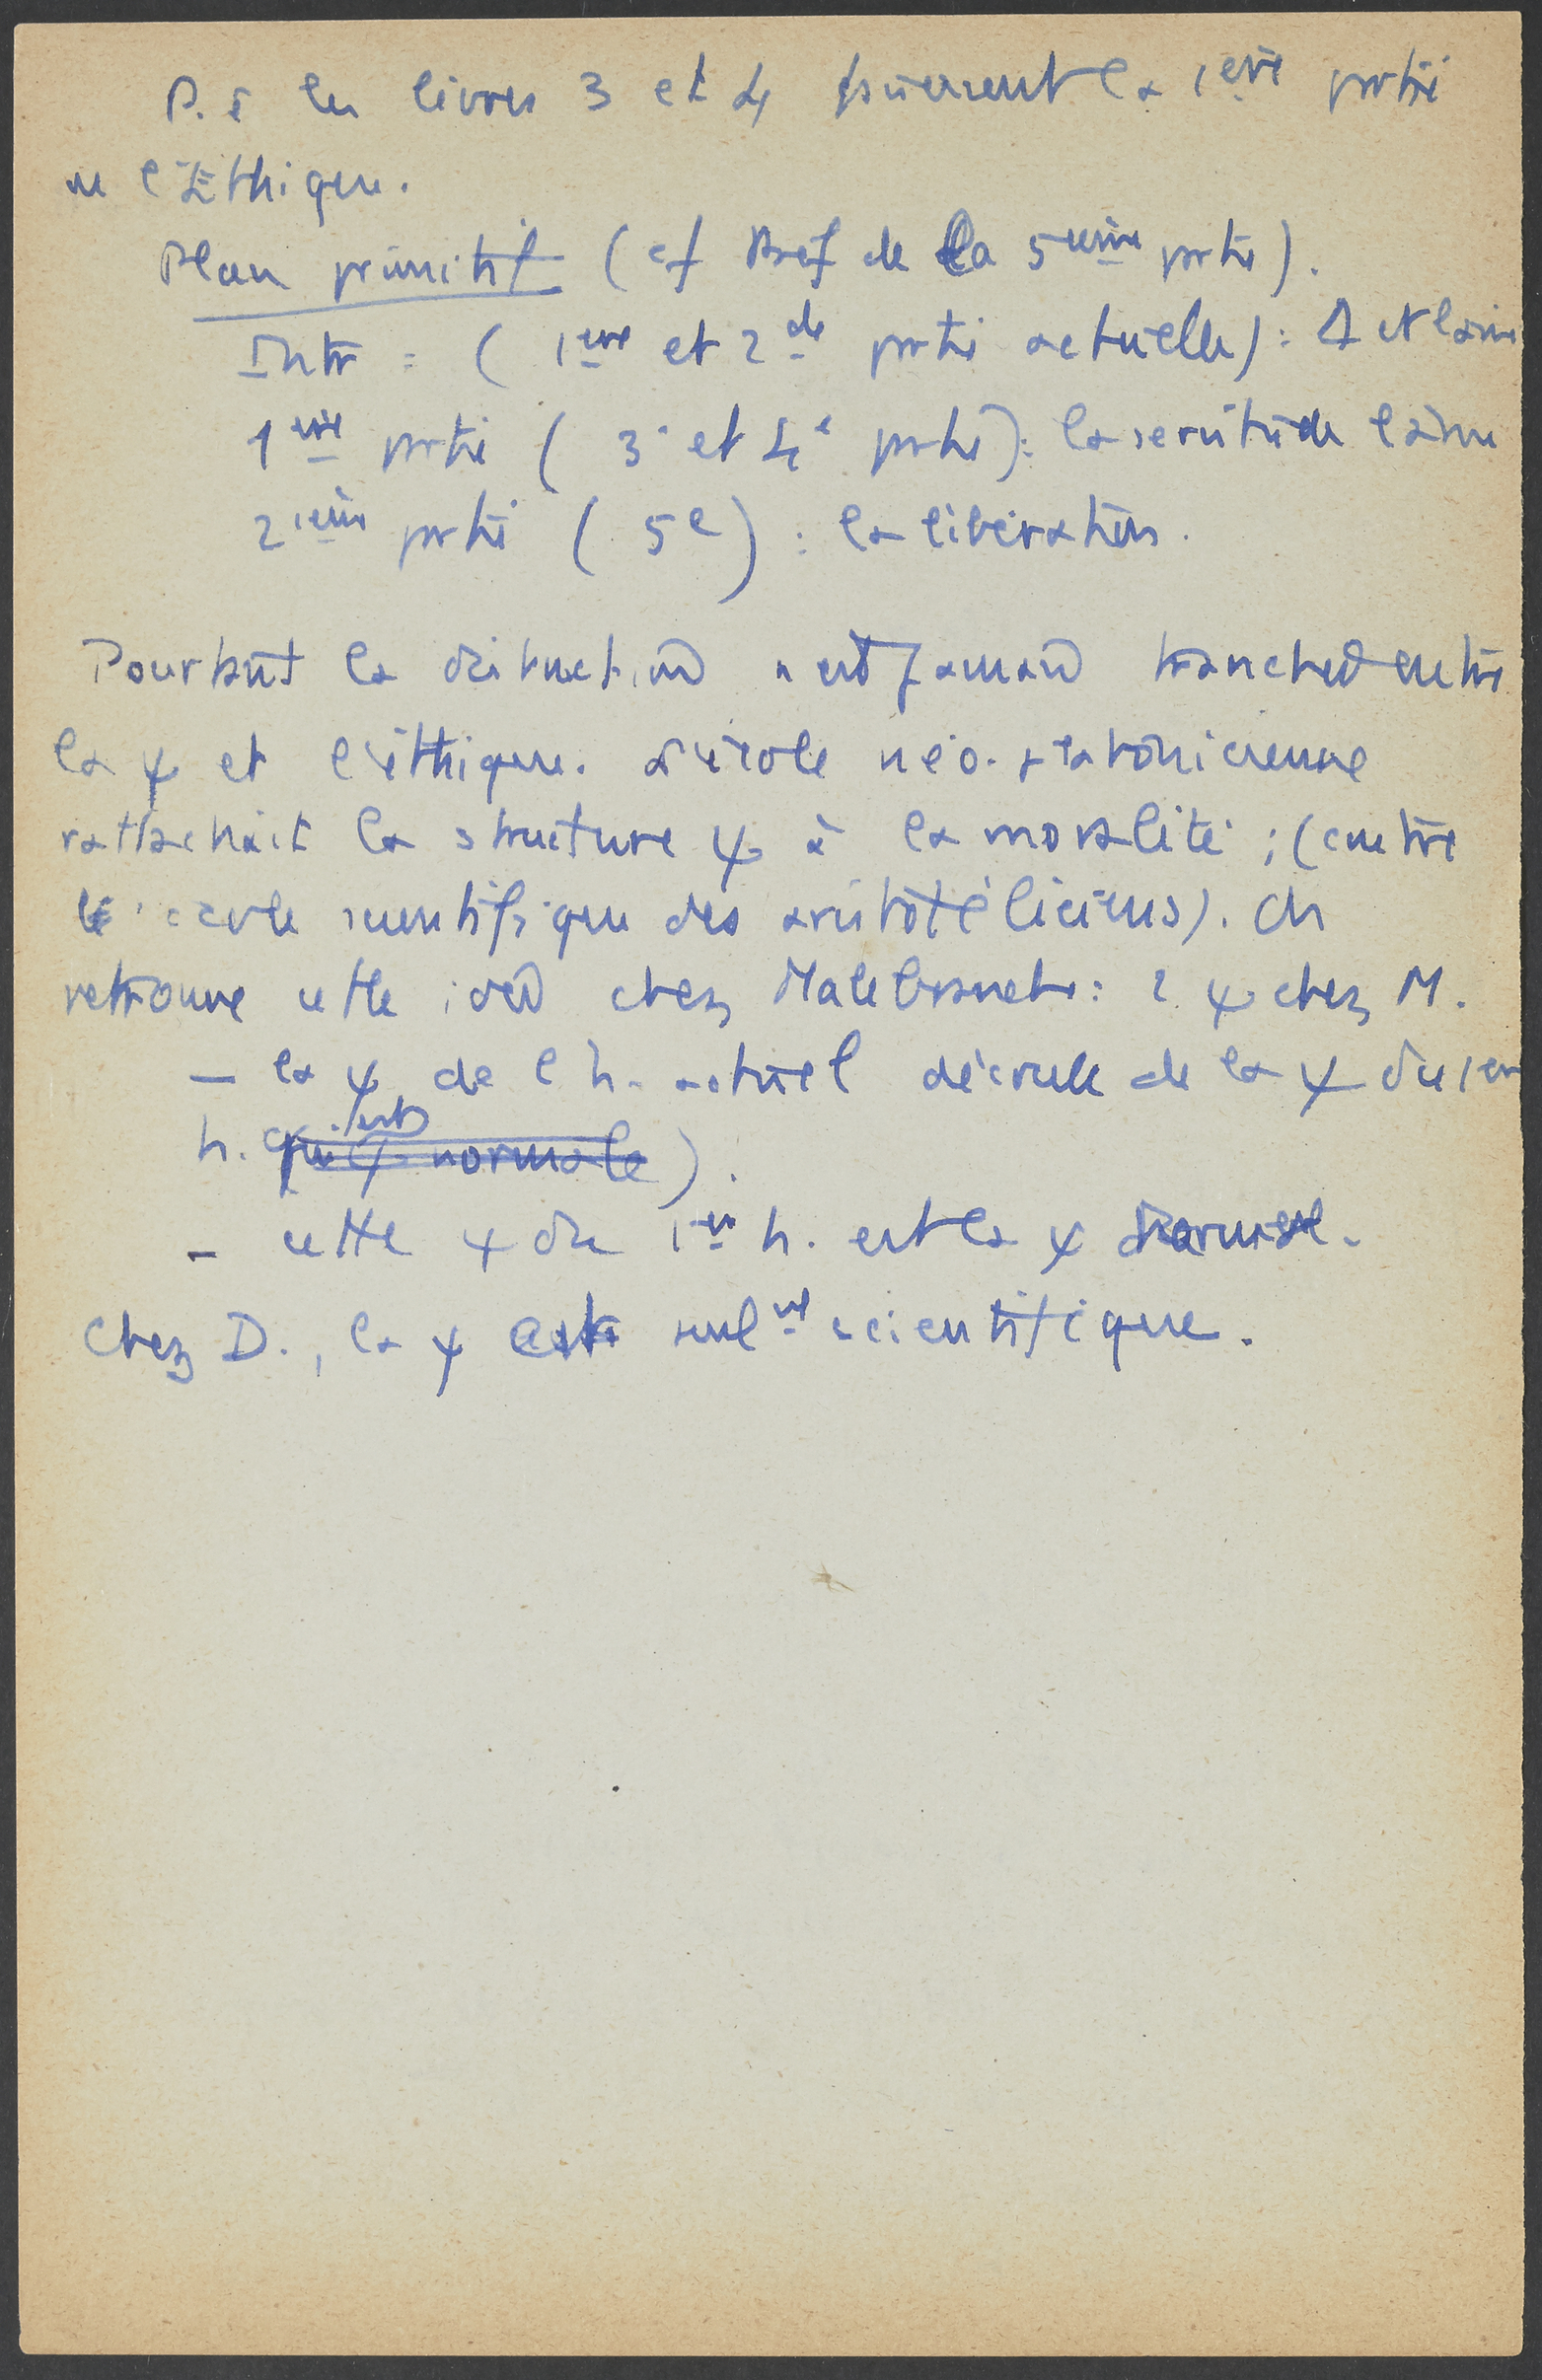 P. ê les livres 3 et 4 forment la 1ère partie
de l'Ethique.
Plan primitif (cf Préf de la 5ème partie).
Intr = (1ère et 2de partie actuelle): Δ et l'âme
1ère partie (3e et 4e partie): la servitude l'âme
2ième partie (5e): la libération.
Pourtant la distinction n'est jamais tranchée entre
la ψ et l'éthique. L'école néo-platonicienne
rattachait la structure ψ à la moralité; (contre
l'école scientifique des aristotéliciens). On
retrouve cette idée chez Malebranche: 2 ψ chez M.
– la ψ de l'h. actuel découle de la ψ du 1er
h. qui est ψ normale).
– cette ψ du 1er h. est la ψ normale.
Chez D., la ψ est seulmt scientifique.